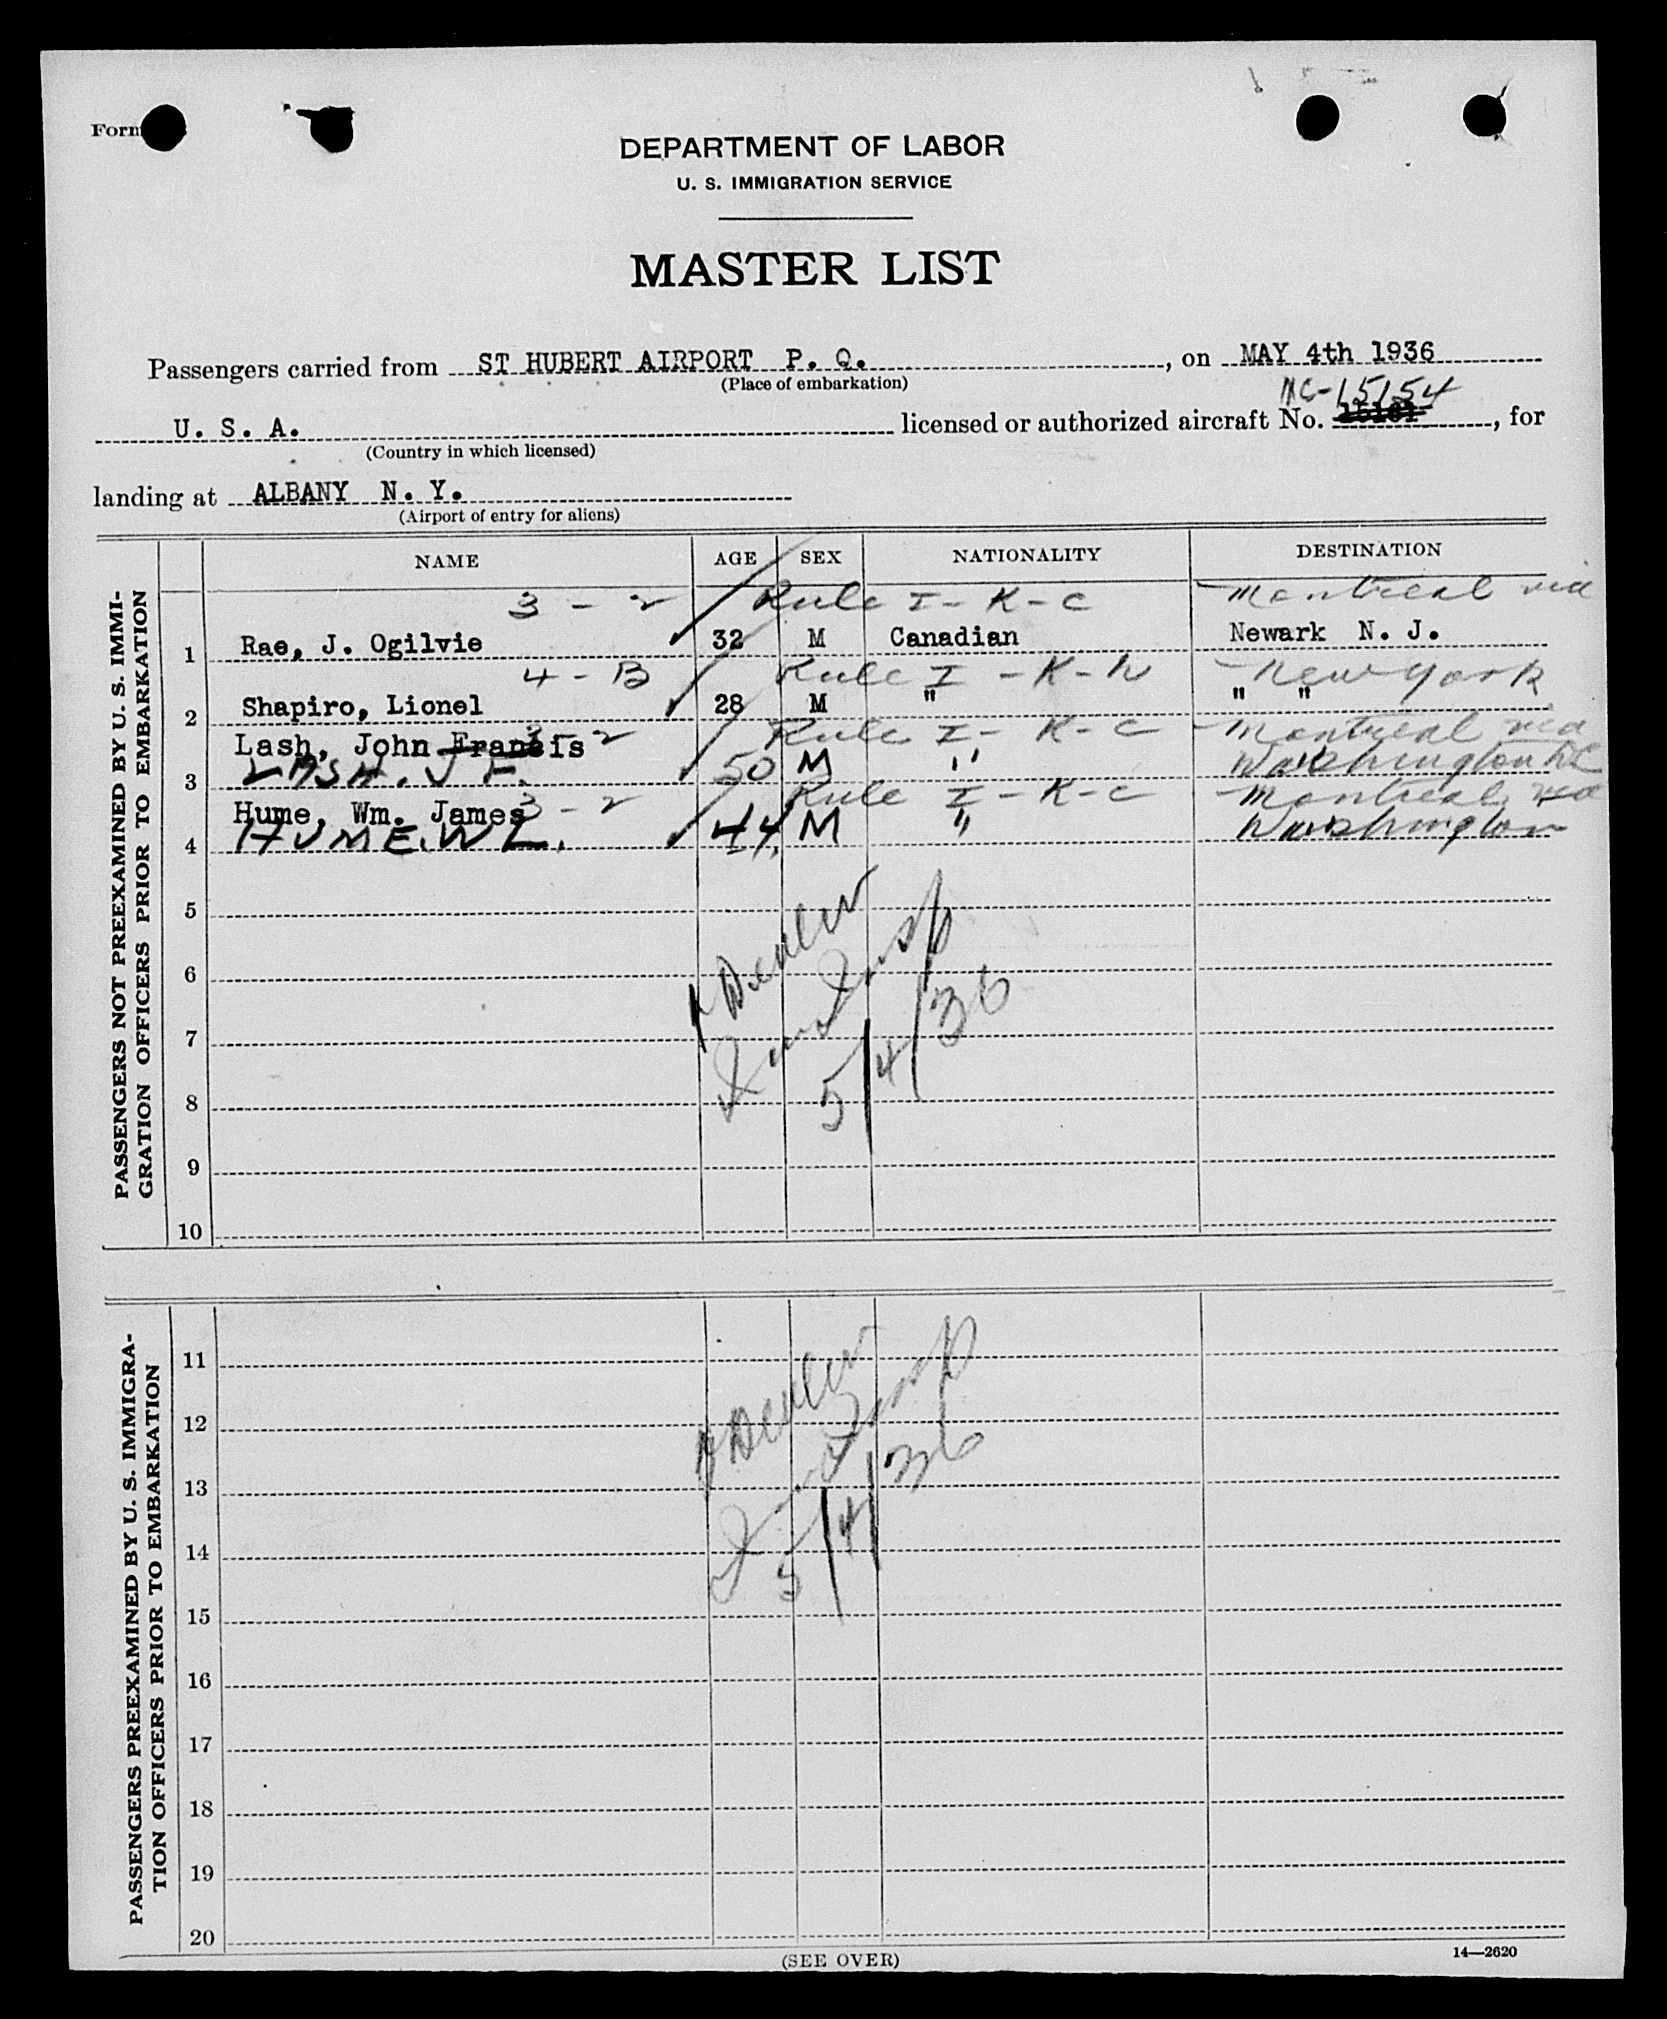 Form
DEPARTMENT OF LABOR
U. S. IMMIGRATION SERVICE
MASTER LIST
Passengers carried from ST HUBERT AIRPORT P. Q., on MAY 4th 1936
(Place of embarkation)
NC-15154
U. S. A. licensed or authorized aircraft No. 15161, for
(Country in which licensed)
landing at ALBANY N. Y.
(Airport of entry for aliens)
NAME AGE SEX NATIONALITY DESTINATION
PASSENGERS NOT PREEXAMINED BY U. S. IMMI-
GRATION OFFICERS PRIOR TO EMBARKATION
3 - 2 Rule I - K - C Montreal via
1 Rae, J. Ogilvie 32 M Canadian Newark N. J.
4 - B Rule I - K - h New York
2 Shapiro, Lionel 28 M " " "
Lash, John Francis 3 - 2 Rule I - K - C Montreal via
3 LASH. J F. 50 M " Washington DC
Hume, Wm. James 3 - 2 Rule I - K - C Montreal via
4 HUME. W L. 44 M " Washington
5
6
7
8
9
10
5/4/36
PASSENGERS PREEXAMINED BY U. S. IMMIGRA-
TION OFFICERS PRIOR TO EMBARKATION
11
12
13
14
15
16
17
18
19
20
5/4/36
(SEE OVER)
14—2620